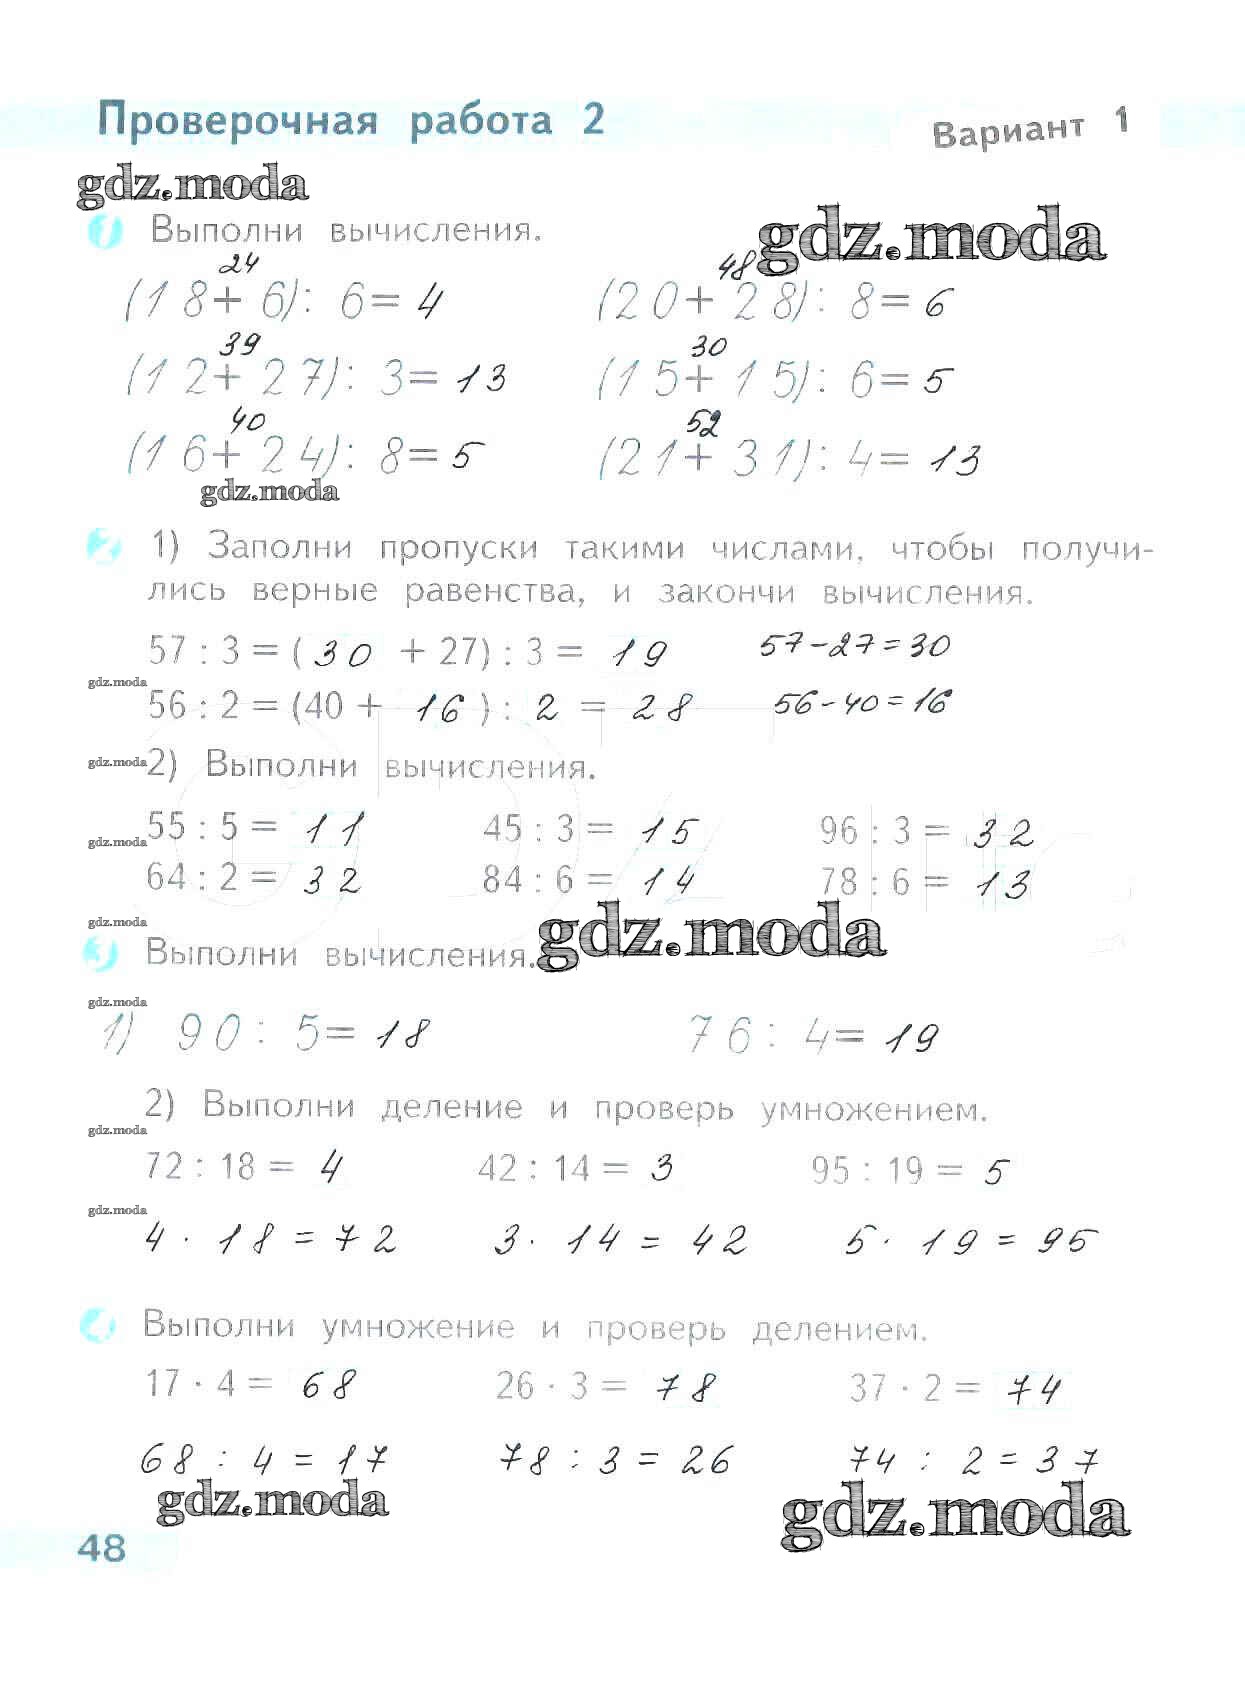 Проверочная работа 2 Вариант 1
gdz.moda
1 Выполни вычисления.
gdz.moda
24 48
(18+6): 6=4 (20+28): 8=6
39 30
(12+27): 3=13 (15+15): 6=5
40 52
(16+24): 8=5 (21+31): 4=13
gdz.moda
2 1) Заполни пропуски такими числами, чтобы получи-
лись верные равенства, и закончи вычисления.
57 : 3 = ( 30 + 27) : 3 = 19 57-27=30
gdz.moda
56 : 2 = (40 + 16 ) : 2 = 28 56-40=16
gdz.moda
2) Выполни вычисления.
55 : 5 = 11 45 : 3 = 15 96 : 3 = 32
gdz.moda
64 : 2 = 32 84 : 6 = 14 78 : 6 = 13
gdz.moda
3 Выполни вычисления.
gdz.moda
gdz.moda
1) 90: 5=18 76: 4=19
2) Выполни деление и проверь умножением.
gdz.moda
72 : 18 = 4 42 : 14 = 3 95 : 19 = 5
gdz.moda
4 · 18 = 72 3 · 14 = 42 5 · 19 = 95
4 Выполни умножение и проверь делением.
17 · 4 = 68 26 · 3 = 78 37 · 2 = 74
68 : 4 = 17 78 : 3 = 26 74 : 2 = 37
gdz.moda
gdz.moda
48